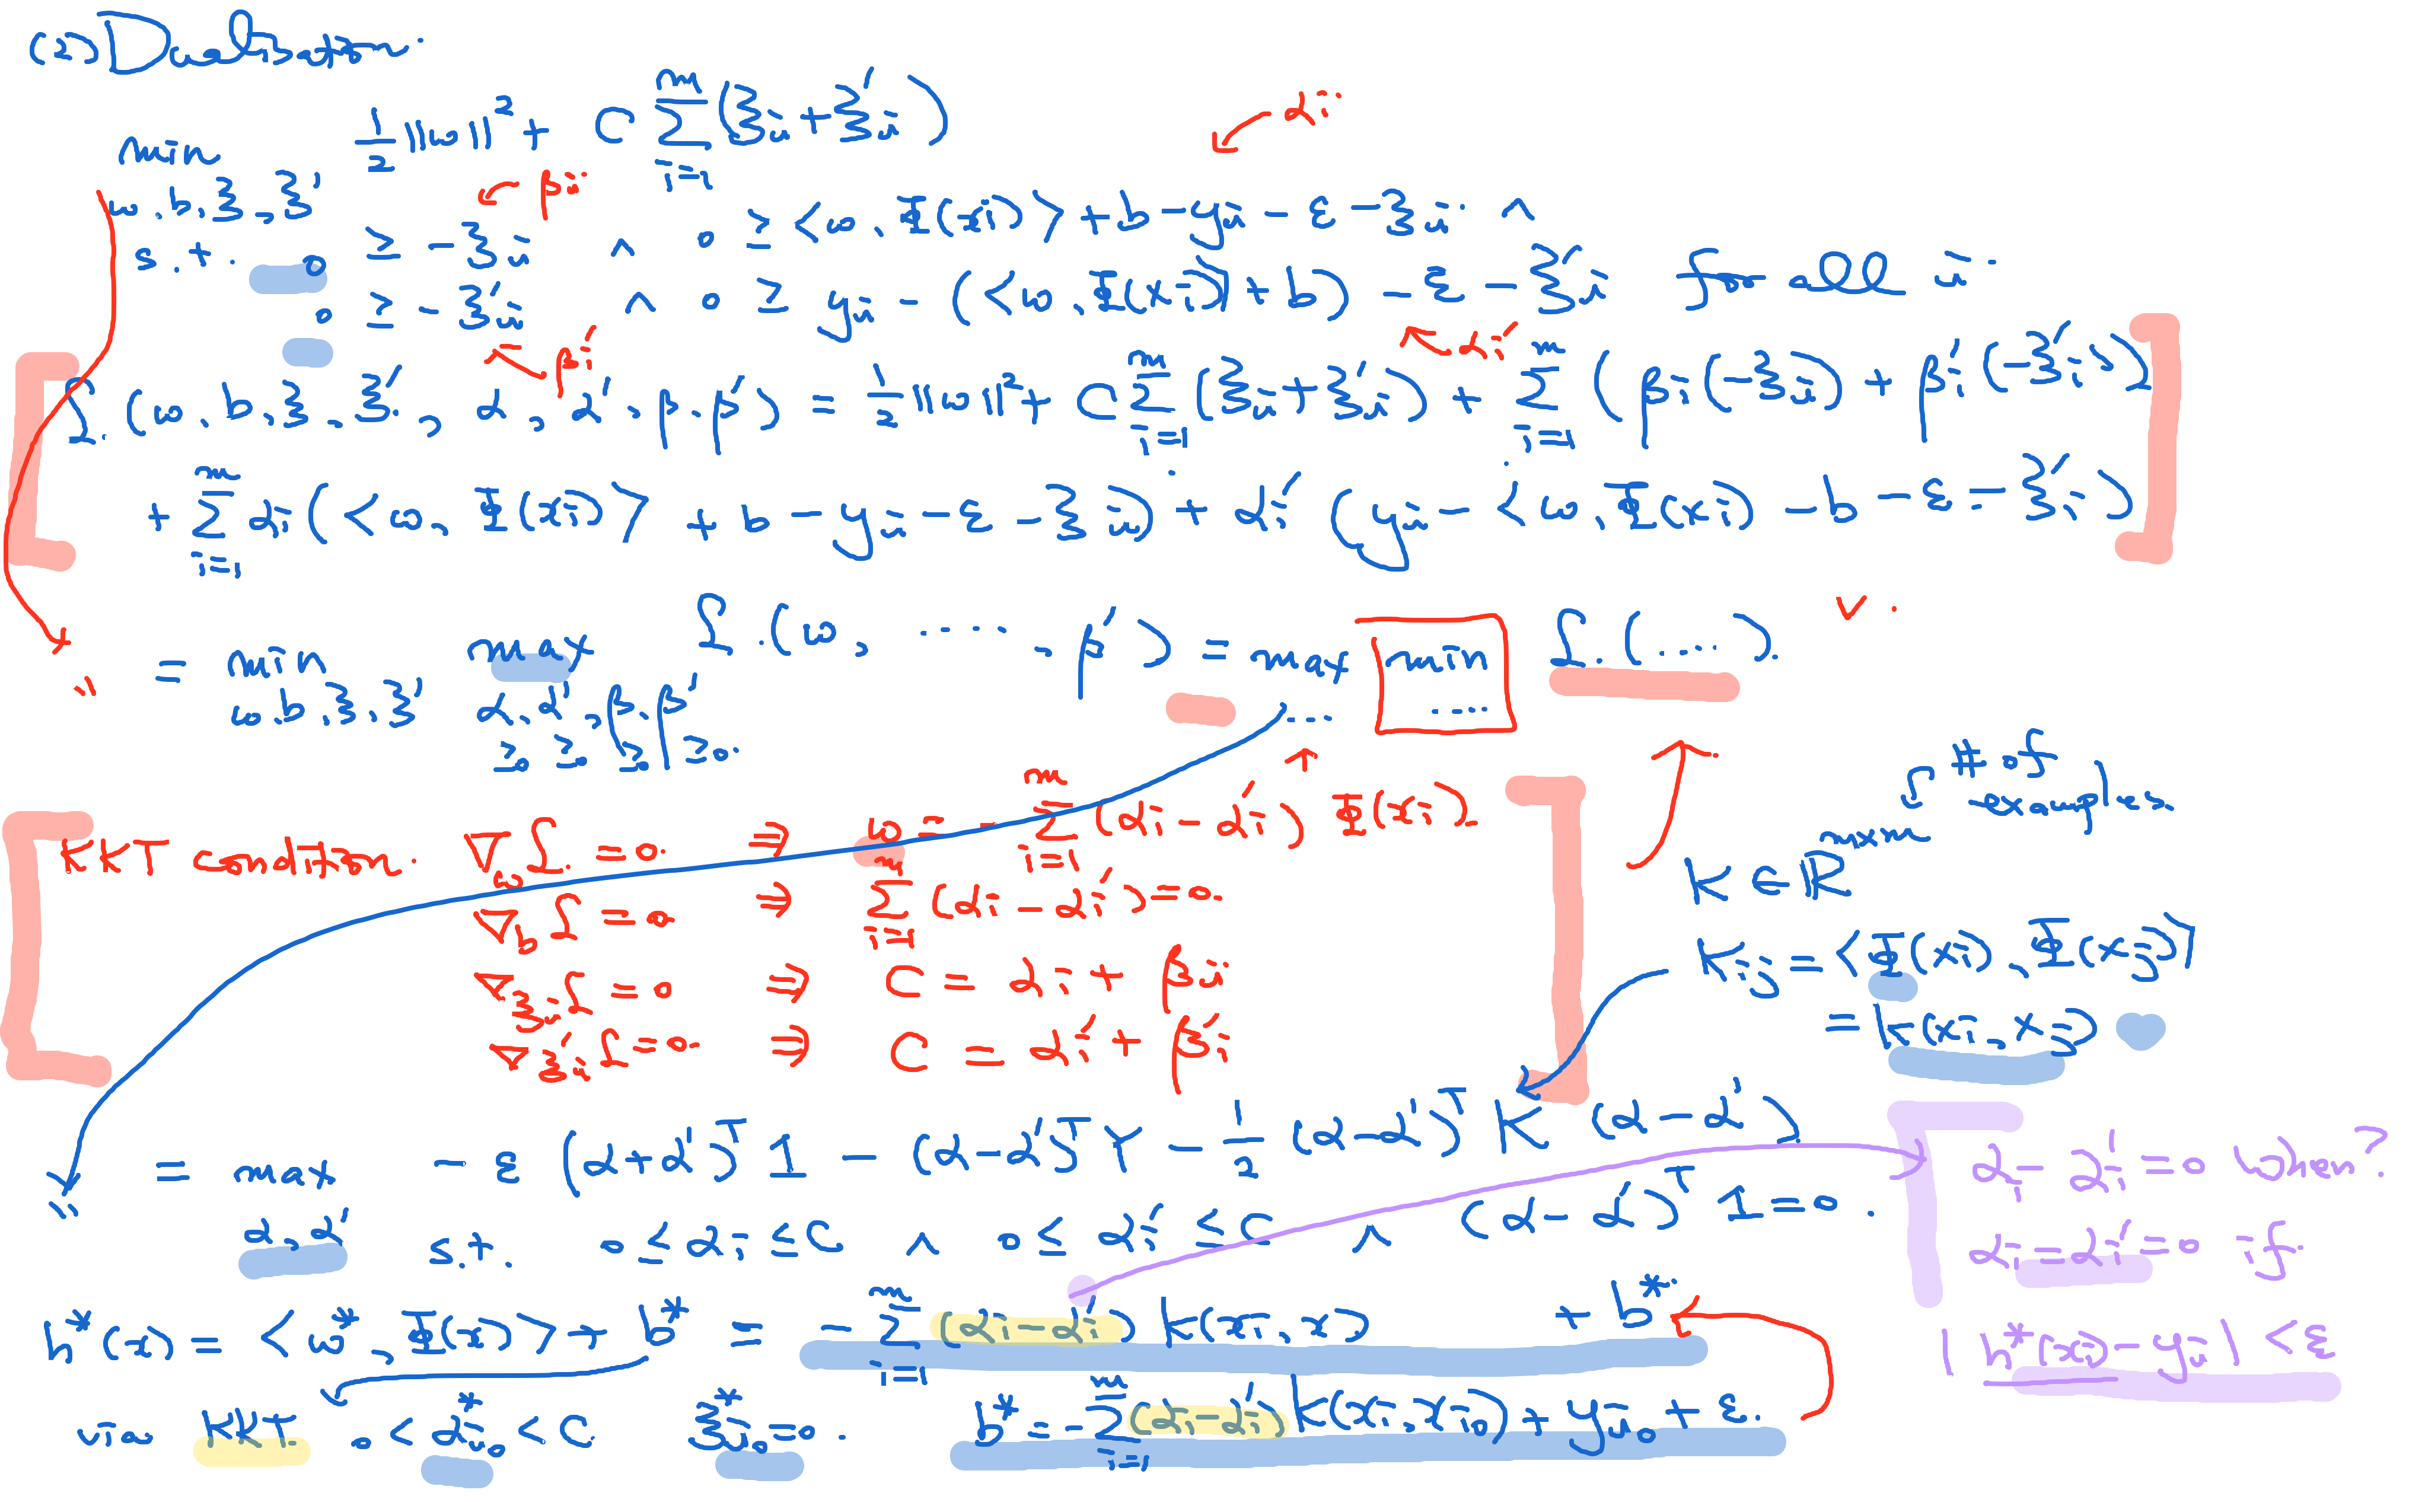 (2) Dualization.
min 1/2 ||w||² + C Σ_{i=1}^{m} (ξ_i + ξ'_i)
w, b, ξ, ξ'
s.t. 0 ≥ -ξ_i ← β_i ∧ 0 ≥ <w, Φ(x_i)> + b - y_i - ε - ξ_i ∧ ← α_i
0 ≥ -ξ'_i ← β'_i ∧ 0 ≥ y_i - (<w, Φ(x_i)> + b) - ε - ξ'_i for all i. ← α'_i
L(w, b, ξ, ξ', α, α', β, β') = 1/2 ||w||² + C Σ_{i=1}^{m} (ξ_i + ξ'_i) + Σ_{i=1}^{m} (β_i(-ξ_i) + β'_i(-ξ'_i))
+ Σ_{i=1}^{m} α_i (<w, Φ(x_i)> + b - y_i - ε - ξ_i) + α'_i (y_i - <w, Φ(x_i)> - b - ε - ξ'_i)
= min max L(w, ...., β') = max min L(....).
w, b, ξ, ξ' α, α', β, β' ... ....
≥0 ≥0 ≥0 ≥0.
KKT condition. ∇_w L = 0 ⇒ w = - Σ_{i=1}^{m} (α_i - α'_i) Φ(x_i).
∇_b L = 0 ⇒ Σ_{i=1}^{m} (α_i - α'_i) = 0.
∇_{ξ_i} L = 0 ⇒ C = α_i + β_i
∇_{ξ'_i} L = 0 ⇒ C = α'_i + β'_i
# of
examples.
K ∈ R^{m×m}
K_ij = <Φ(x_i), Φ(x_j)>
= k(x_i, x_j)
= max - ε (α + α')^T 1 - (α - α')^T Y - 1/2 (α - α')^T K (α - α')
α, α' s.t. 0 ≤ α_i ≤ C ∧ 0 ≤ α'_i ≤ C ∧ (α - α')^T 1 = 0.
α_i - α'_i = 0 when?
α_i = α'_i = 0 if
|h*(x_i) - y_i| < ε
h*(x) = <w*, Φ(x)> + b* = - Σ_{i=1}^{m} (α_i - α'_i) k(x_i, x) + b*
via KKT. 0 < α*_{i_0} < C. ξ*_{i_0} = 0. b* = - Σ_{i=1}^{m} (α_i - α'_i) k(x_i, x_{i_0}) + y_{i_0} + ε.